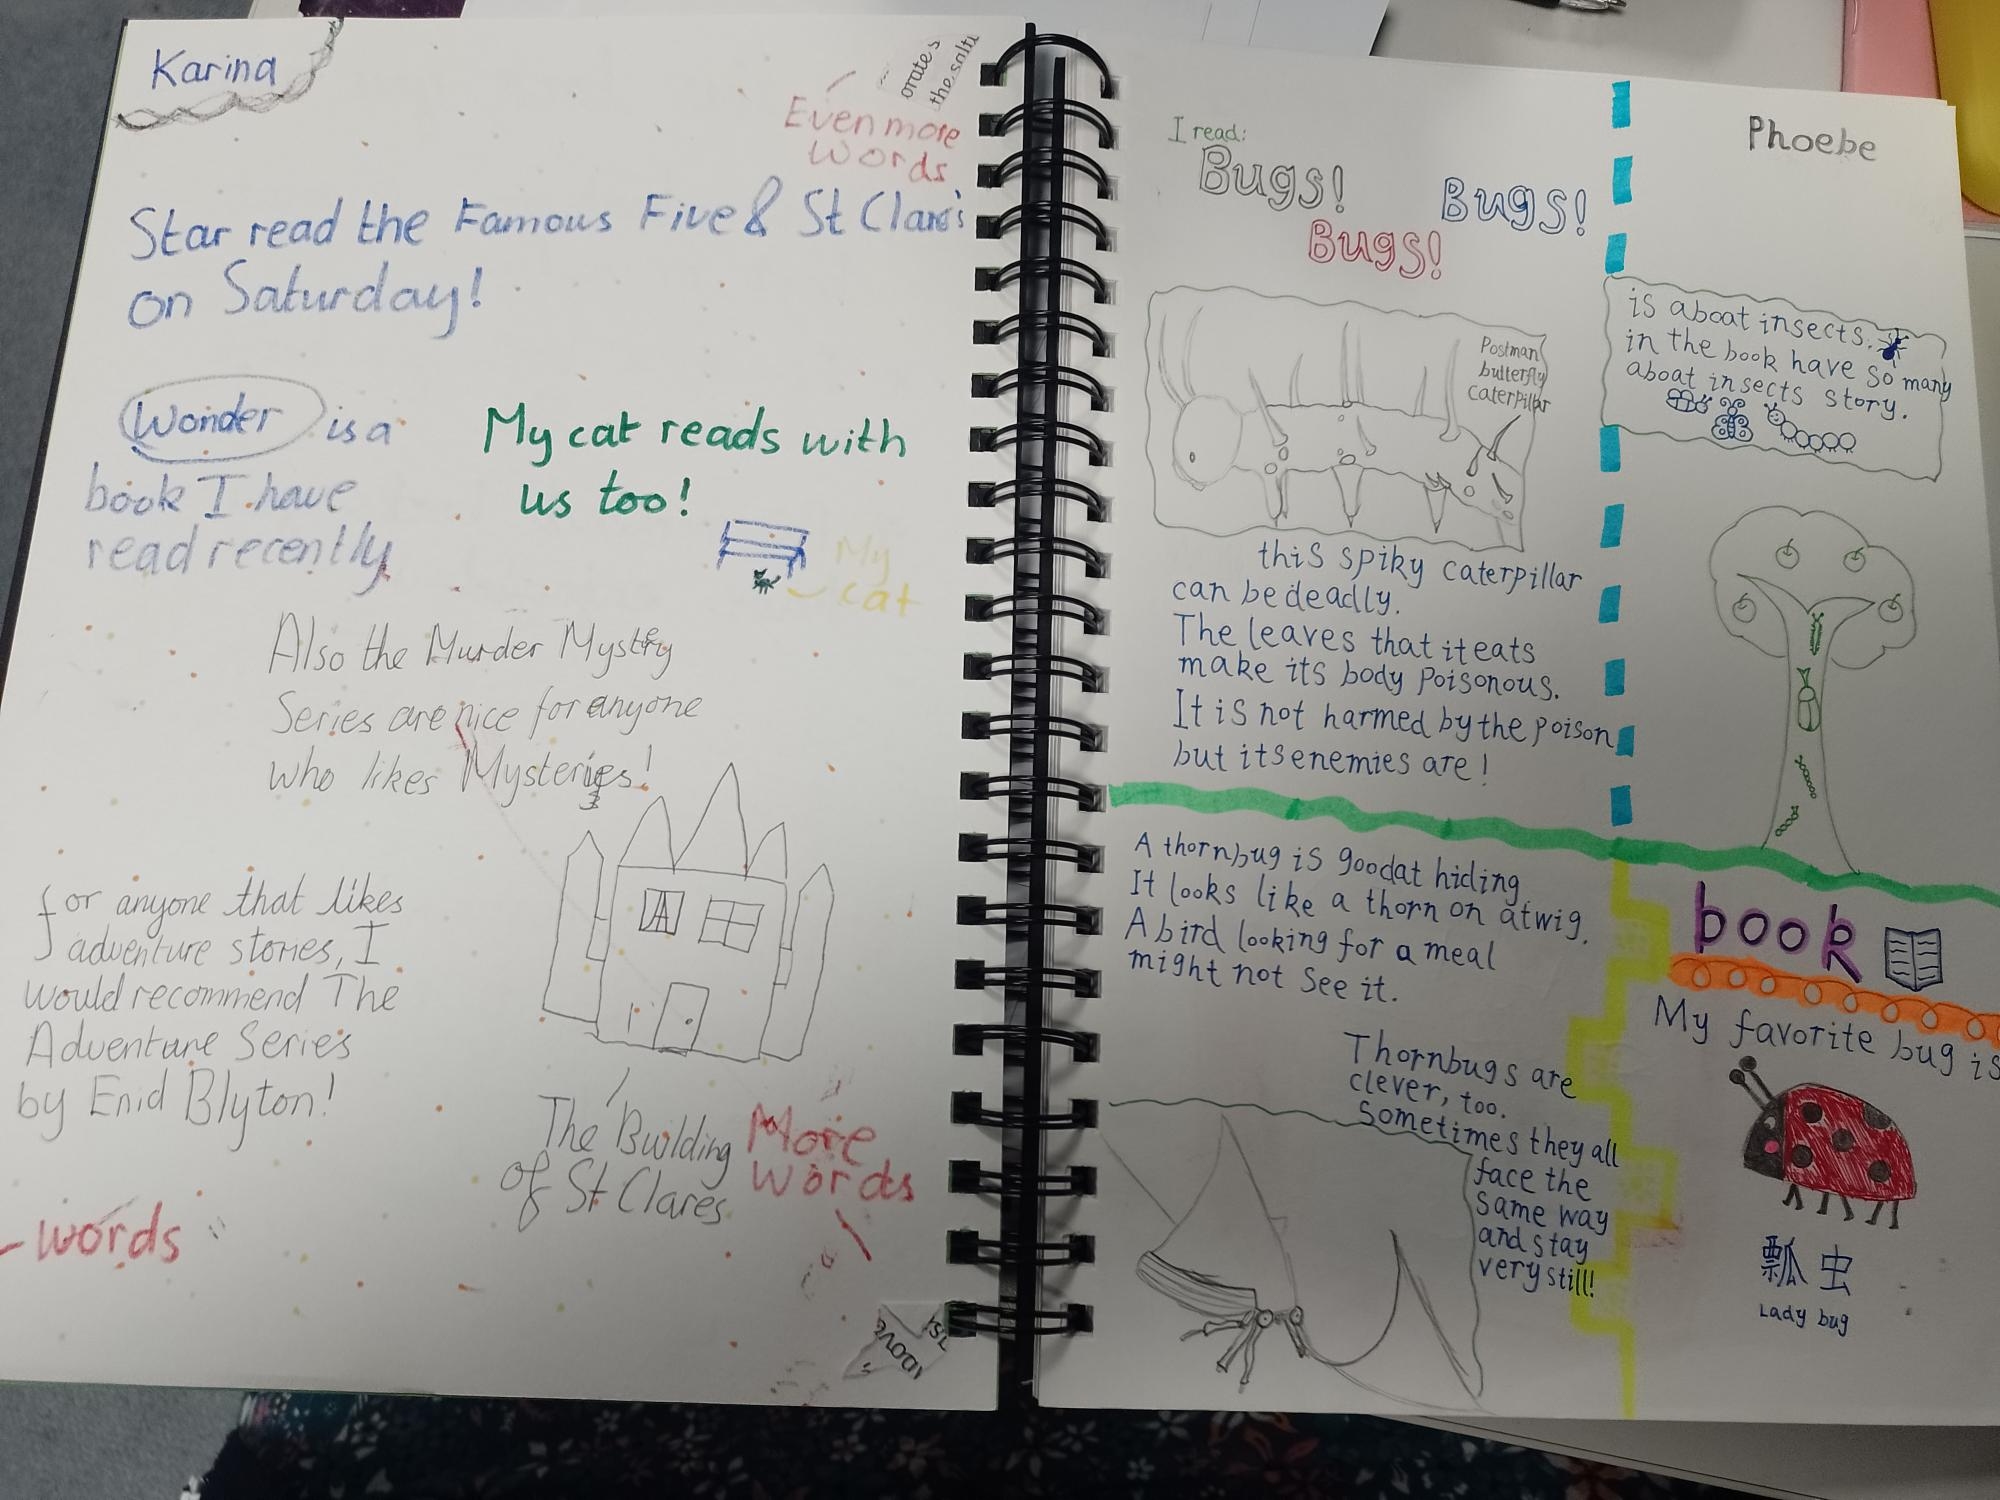 Karina
Even more
words
orates
the salti
Star read the Famous Five & St Clare's
on Saturday!
Wonder is a
book I have
read recently
My cat reads with
us too!
My
cat
Also the Murder Mystery
Series are nice for anyone
who likes Mysteries!
for anyone that likes
adventure stories, I
would recommend The
Adventure Series
by Enid Blyton!
The Building
of St Clares
More
words
words
I read:
Bugs!
Bugs!
Bugs!
Postman
butterfly
caterpillar
this spiky caterpillar
can be deadly.
The leaves that it eats
make its body poisonous.
It is not harmed by the poison
but its enemies are!
Phoebe
is aboat insects.
in the book have so many
aboat insects story.
A thornbug is good at hiding
It looks like a thorn on a twig.
A bird looking for a meal
might not see it.
Thornbugs are
clever, too.
Sometimes they all
face the
same way
and stay
very still!
book
My favorite bug is
瓢虫
Lady bug